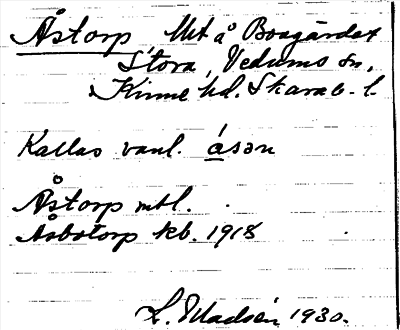 Åstorp Utt å Boagärdet
Stora, Vedums sn,
Kinne hd. Skarab. l.
Kallas vanl. åsən
Åstorp mtl.
Åsbotorp kb. 1918
L. Madsén 1930.